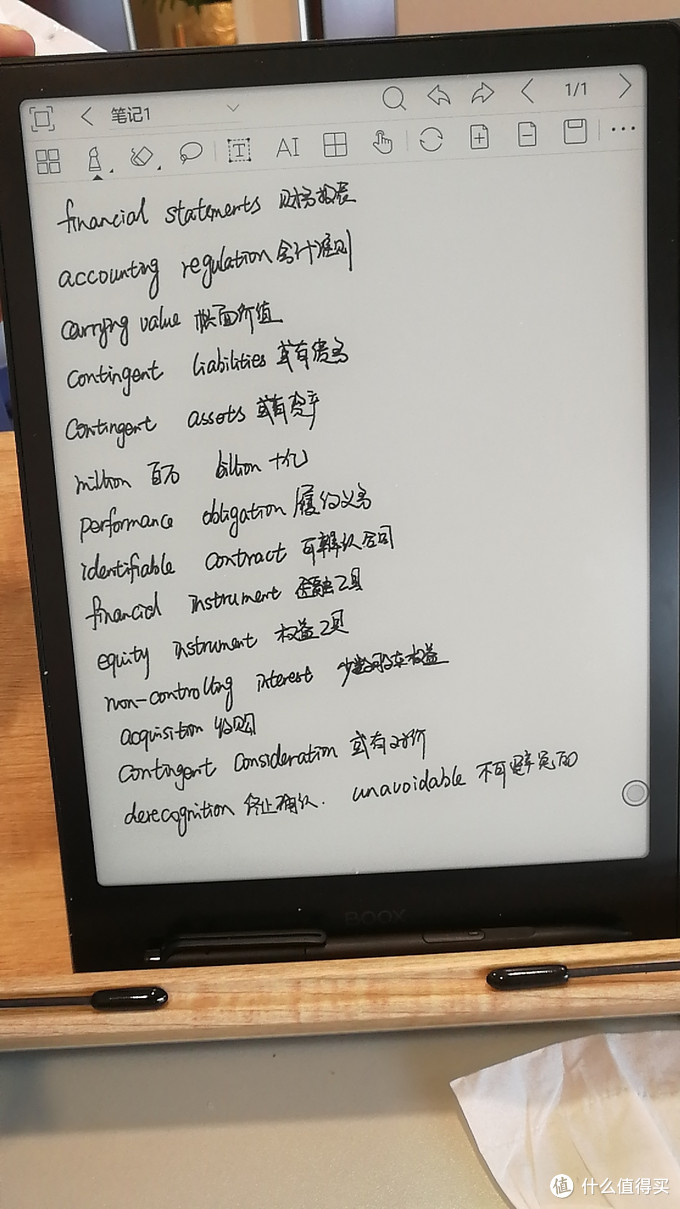 笔记1
1/1
AI
financial statements 财务报表
accounting regulation 会计准则
carrying value 帐面价值
contingent liabilities 或有债务
contingent assets 或有资产
million 百万 billion 十亿
performance obligation 履约义务
identifiable contract 可辨认合同
financial instrument 金融工具
equity instrument 权益工具
non-controlling interest 少数股东权益
acquisition 收购
contingent consideration 或有对价
derecognition 终止确认. unavoidable 不可避免的
BOOX
值 什么值得买